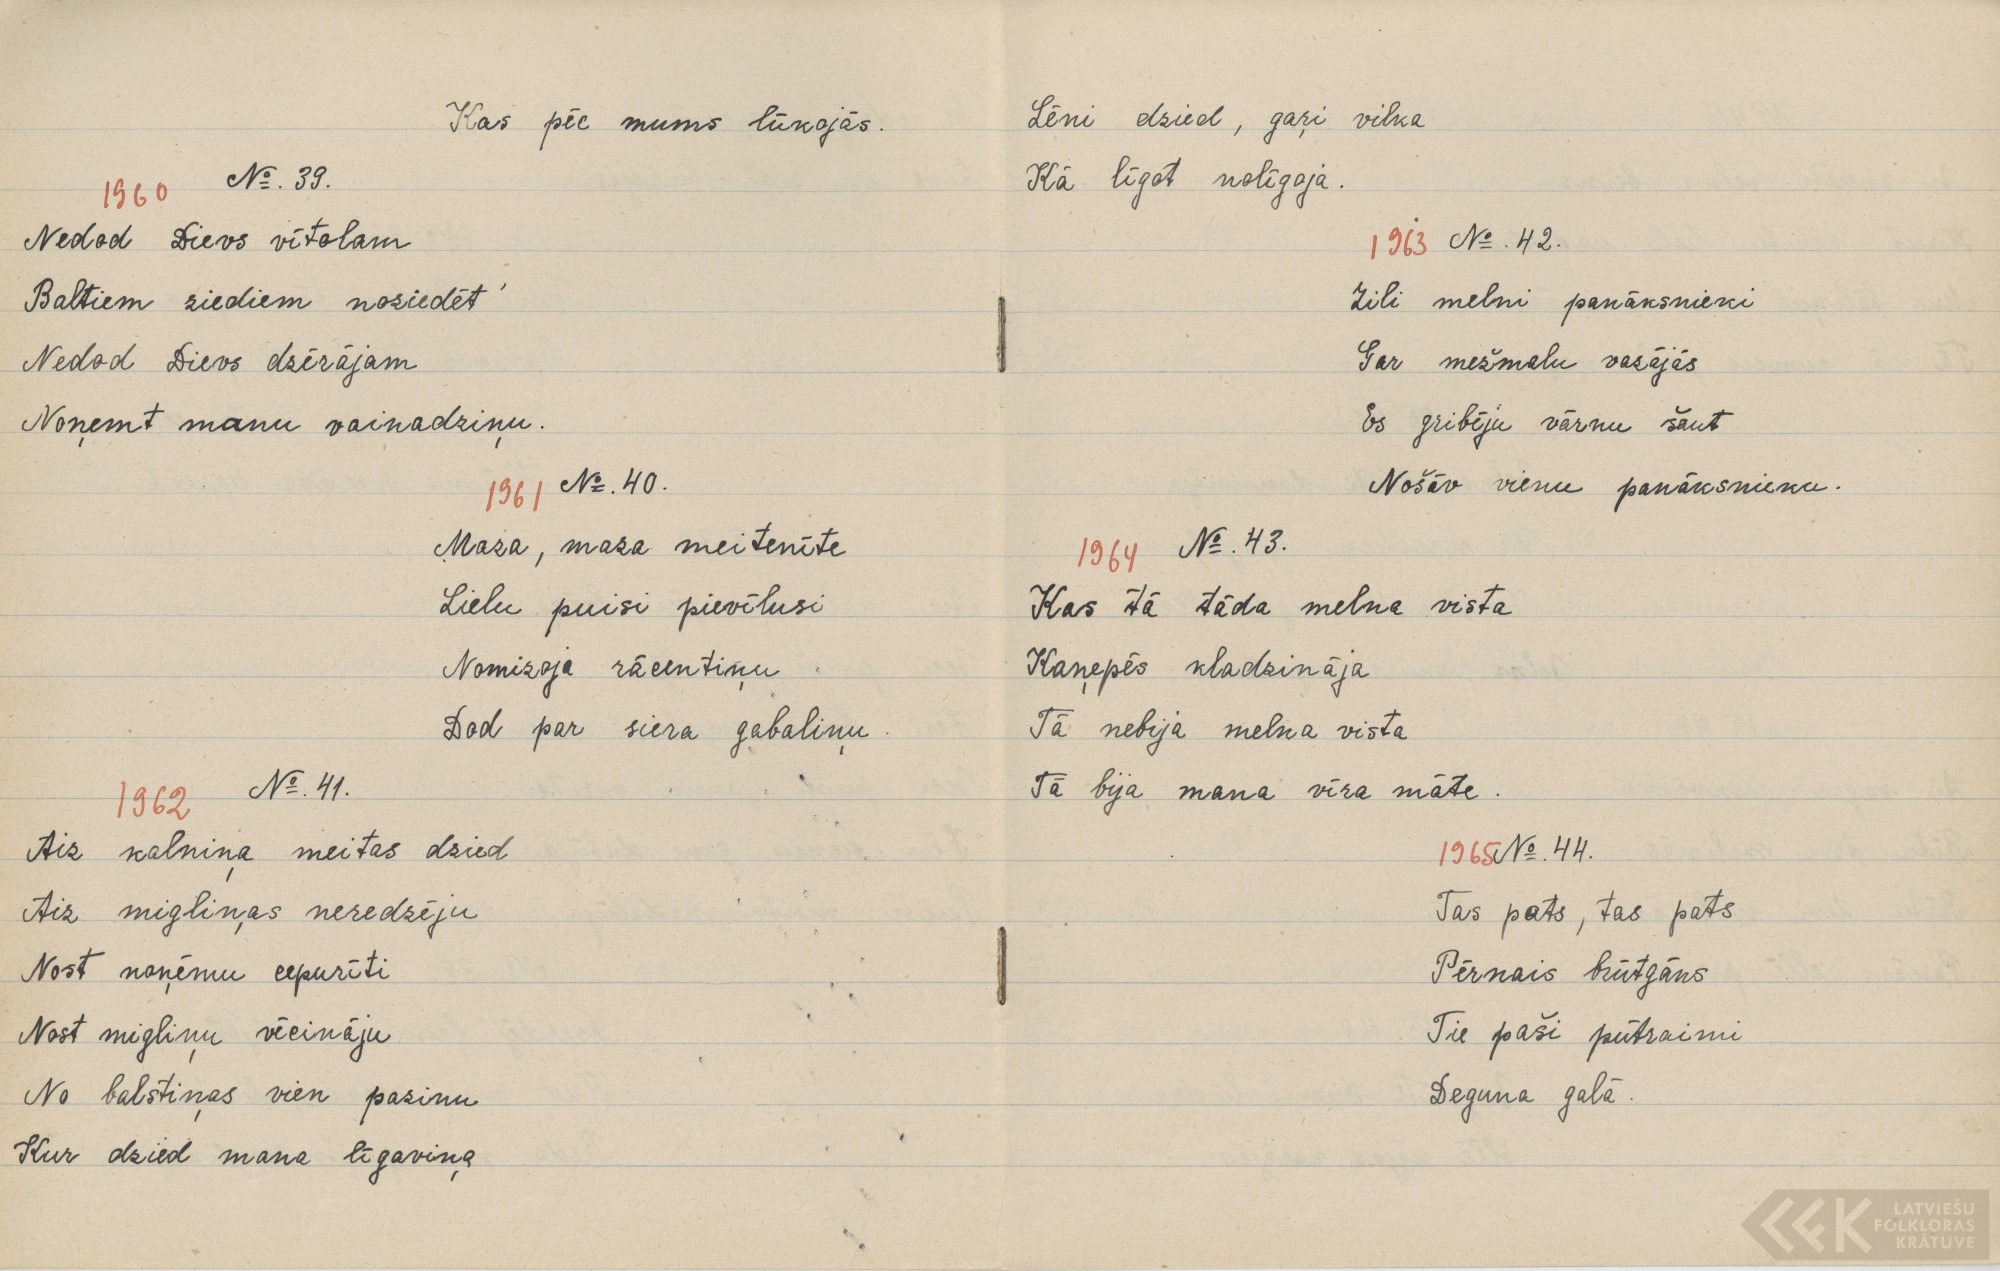 Kas pēc mums lūkojās.
1960 №. 39.
Nedod Dievs vītolam
Baltiem ziediem noziedēt
Nedod Dievs dzērājam
Noņemt manu vainadziņu.
1961 №. 40.
Maza, maza meitenīte
Lielu puisi pievīlusi
Nomizoja rācentiņu
Dod par siera gabaliņu.
1962 №. 41.
Aiz kalniņa meitas dzied
Aiz migliņas neredzēju
Nost noņēmu cepurīti
Nost migliņu vēcināju
No balstiņas vien pazinu
Kur dzied mana līgaviņa
Lēni dzied, gaŗi vilka
Kā līgot nolīgoja.
1963 №. 42.
Zili melni panāksnieki
Gar mežmalu vazājās
Es gribēju vārnu šaut
Nošāv vienu panāksnieku.
1964 №. 43.
Kas tā tāda melna vista
Kaņepēs kladzināja
Tā nebija melna vista
Tā bija mana vīra māte.
1965 №. 44.
Tas pats, tas pats
Pērnais brūtgāns
Tie paši pūtraimi
Deguna galā.
LATVIEŠU
FOLKLORAS
KRĀTUVE